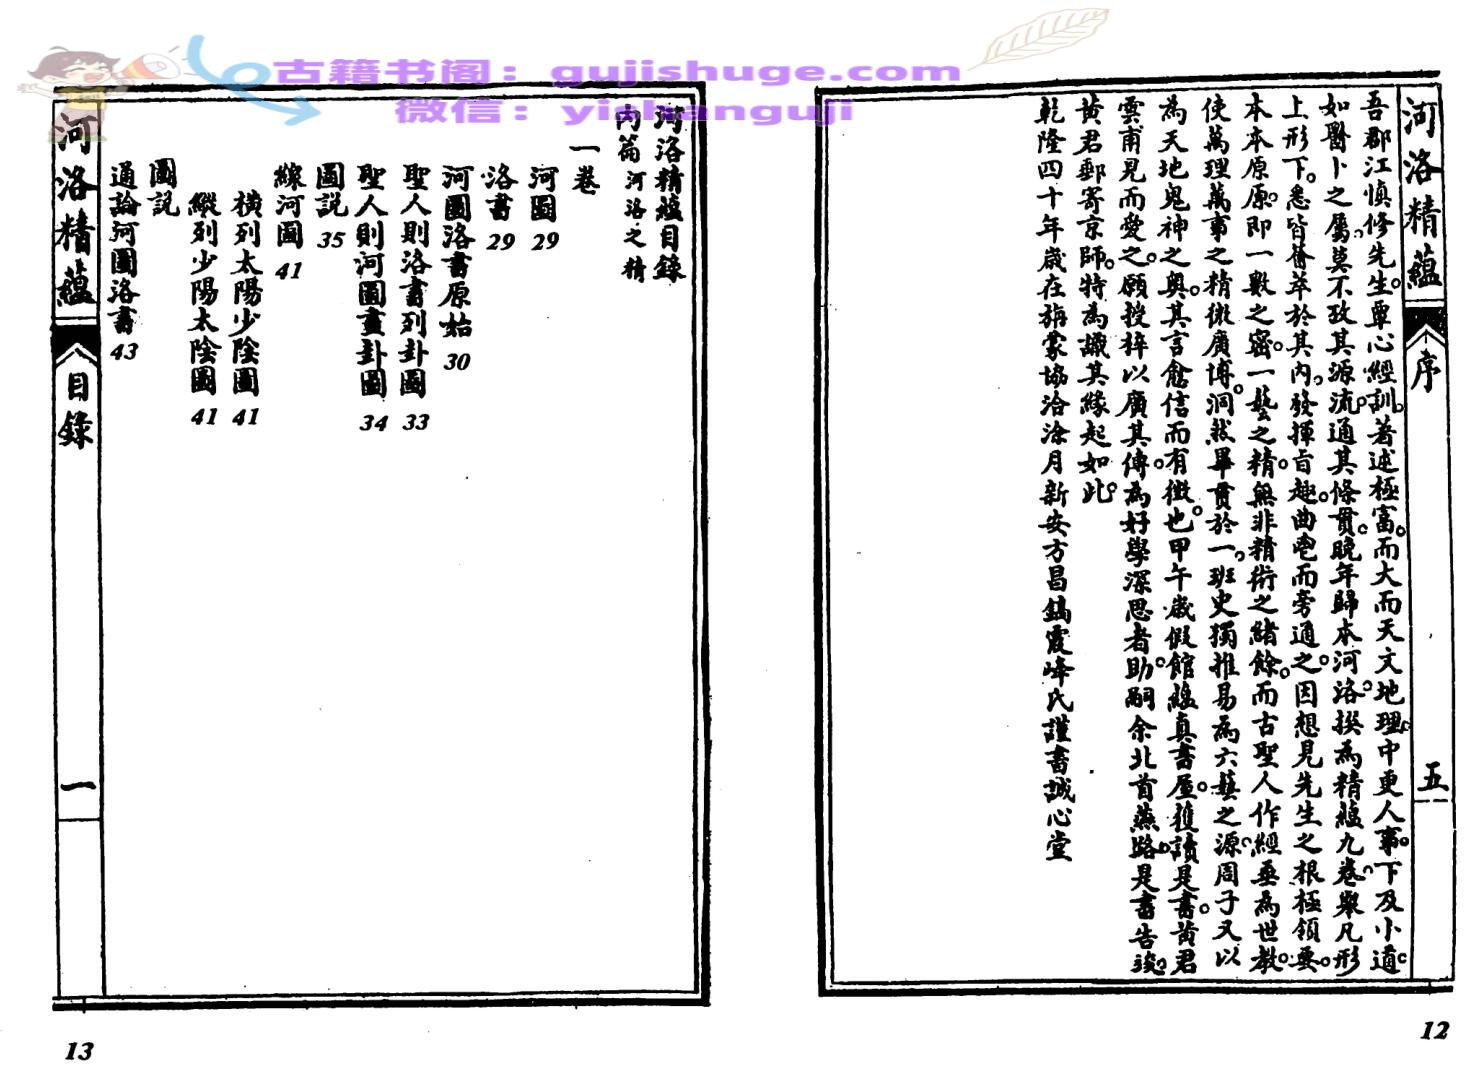 古籍书阁：gujishuge.com
微信：yishanguji
河洛精蘊
序
五
吾郡江慎修先生。覃心經訓。著述極富。而大而天文地理。中更人事。下及小道。
如醫卜之屬。莫不攷其源流。通其條貫。晚年歸本河洛。撰為精蘊九卷。舉凡形
上形下。悉皆薈萃於其內。發揮旨趣。曲鬯而旁通之。因想見先生之根極領要。
本本原原。即一數之密。一藝之精。無非精術之緒餘。而古聖人作經垂為世教。
使萬理萬事之精微廣博。洞然畢貫於一。班史獨推易為六藝之源。周子又以
為天地鬼神之奧。其言愈信而有徵也。甲午歲假館蘊真書屋。獲讀是書。黄君
雲甫見而愛之。願授梓以廣其傳。為好學深思者助。嗣余北首燕路。是書告竣。
黄君郵寄京師。特為識其緣起如此。
乾隆四十年歲在旃蒙協洽涂月新安方昌鎬霞峰氏謹書誠心堂
12
河洛精蘊目錄
內篇 河洛之精
一卷
河圖 29
洛書 29
河圖洛書原始 30
聖人則洛書列卦圖 33
聖人則河圖畫卦圖 34
圖説 35
線河圖 41
橫列太陽少陰圖 41
縱列少陽太陰圖 41
圖説
通論河圖洛書 43
河洛精蘊
目錄
一
13